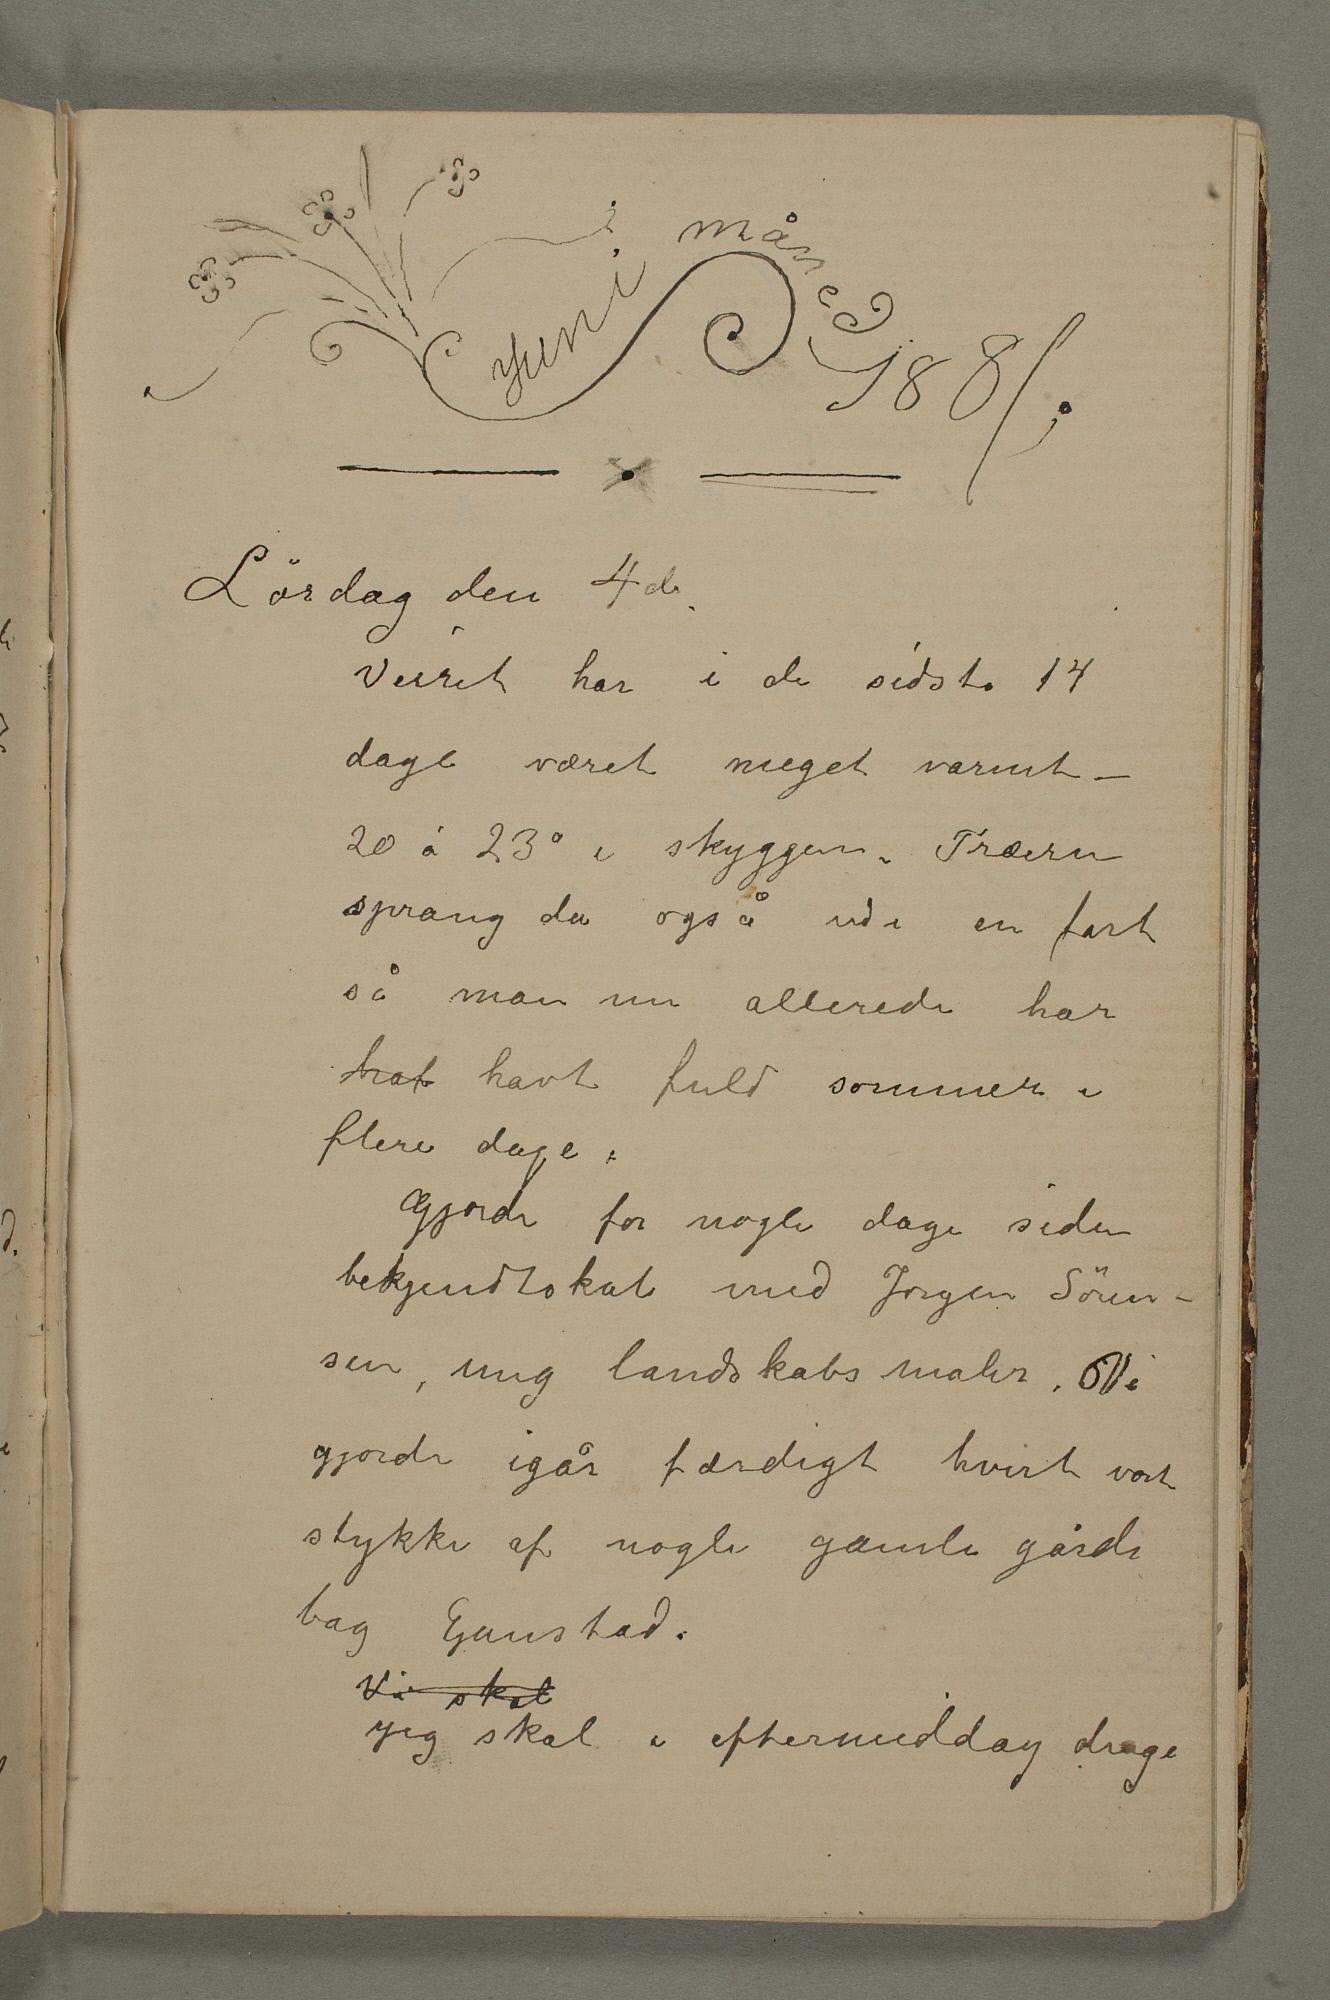 Juni måned 1881;
Lördag den 4de.
Veiret har i de sidste 14
dage været meget varmt –
20 á 23° i skyggen. Træern
sprang da også ud i en fart
så man nu allerede har
hat havt fuld sommer i
flere dage.
Gjorde for nogle dage siden
bekjendtskab med Jorgen Sören-
sen, ung landskabsmaler. Vi
gjorde igår færdigt hvert vort
stykke af nogle gamle gårde
bag Gaustad.
Vi skal
jeg skal i eftermiddag drage